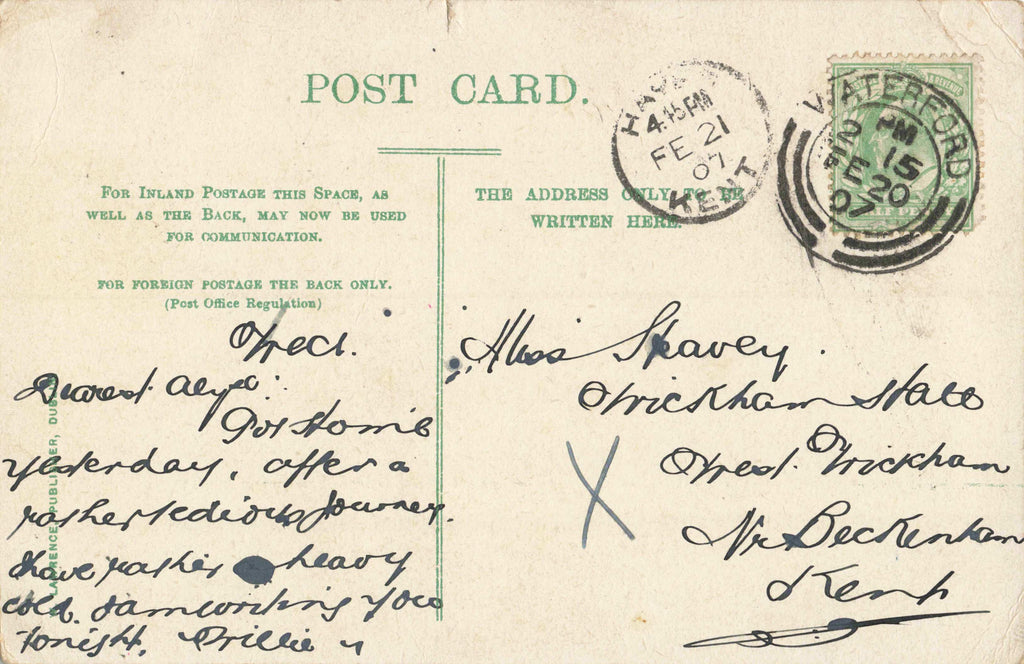 POST CARD.
HAY
4.45 PM
FE 21
07
KENT
WATERFORD
PM
15
FE 20
07
FOR INLAND POSTAGE THIS SPACE, AS
WELL AS THE BACK, MAY NOW BE USED
FOR COMMUNICATION.
FOR FOREIGN POSTAGE THE BACK ONLY.
(Post Office Regulation)
THE ADDRESS ONLY TO BE
WRITTEN HERE.
LAWRENCE, PUBLISHER, DUBLIN
Wed.
Dearest
Got home
yesterday, after a
rather tedious journey.
Have rather heavy
cold. Iam writing you
tonight. Willie
Miss Skavey.
Wickham Hall
West. Wickham
Nr Beckenham
Kent
X